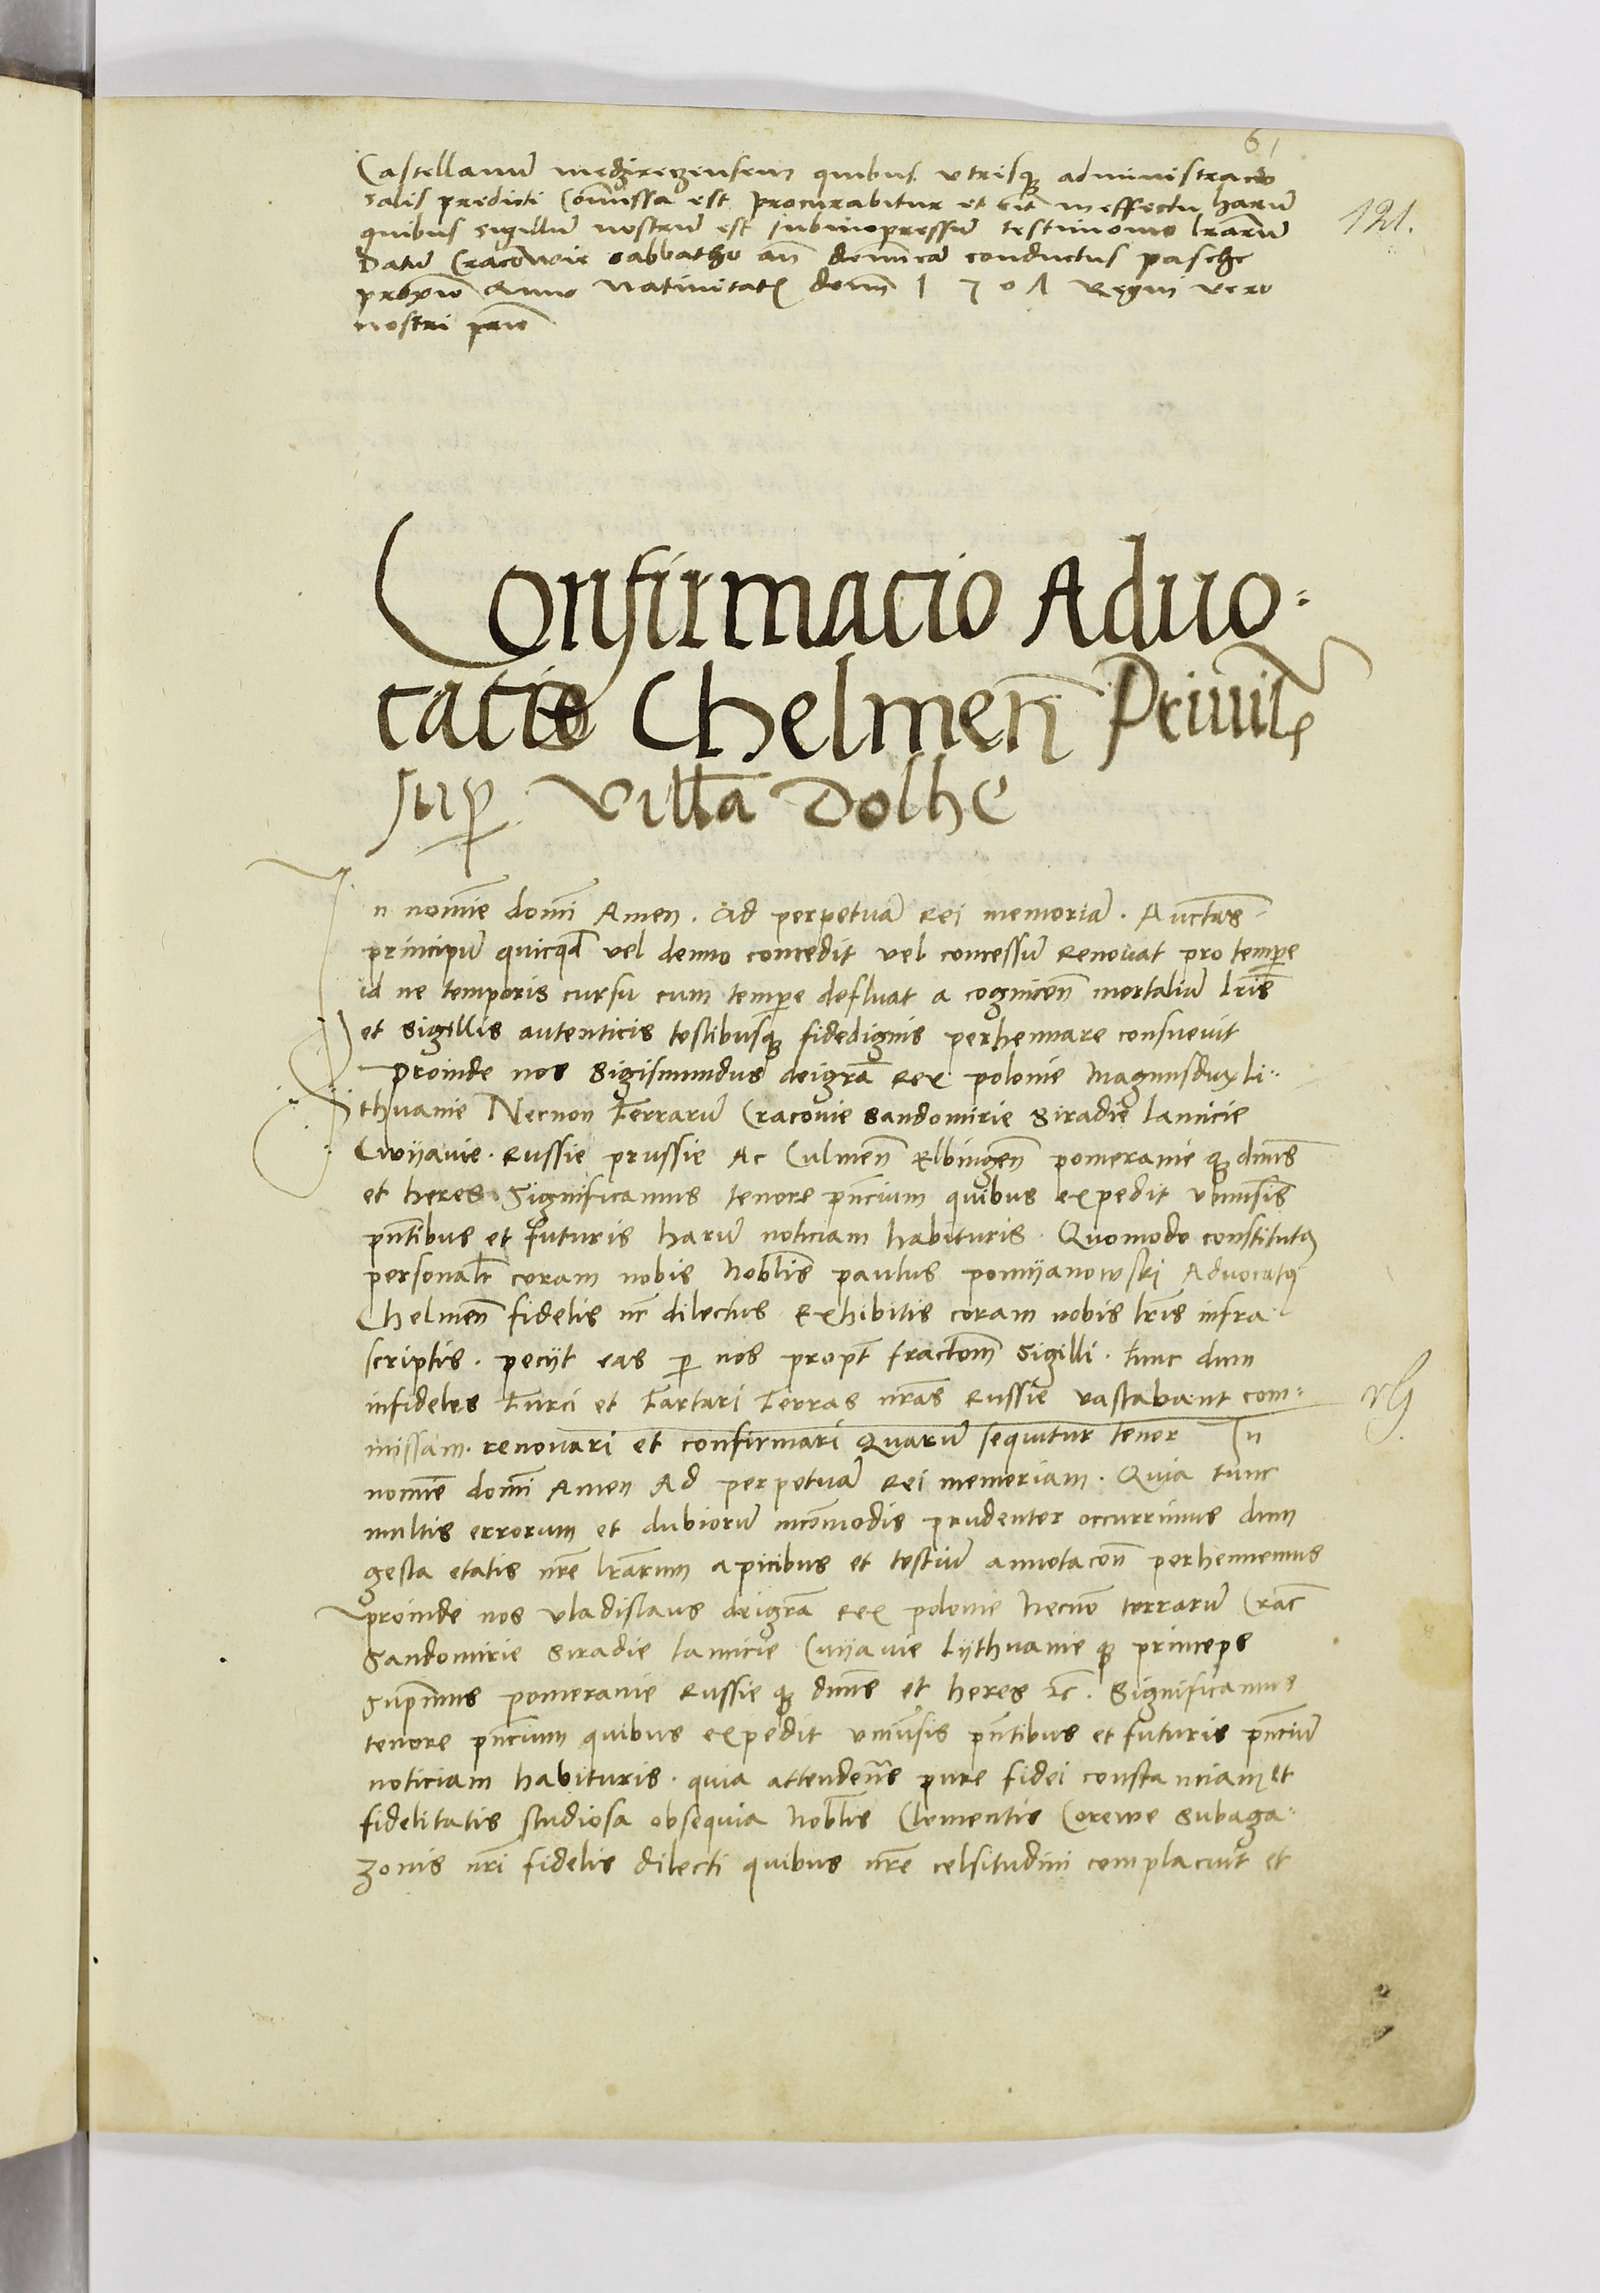 61
Castellanū medzirezensem quibus utrisq₃ administracio
salis predicti Cōmissa est procurabitur et erit in effectu harū
121.
quibus sigillū nostrū est subimpressū testimonio lrarum
Datū Cracowie sabbatho añ dominicā conductus pasche
proximo Anno Nativitatis dom̄ 1 5 0 7 Regni vero
nostri primo
Confirmacio Aduo-
cacie Chelmeñ Privile
sup villā Dolhe
In nomīe domī Amen. Ad perpetuā Rei memoriā. Auctas
principū quicq̄ vel denuo concedit vel concessū Renovat pro tempe
id ne temporis cursu cum tempe defluat a cognicoñ mortaliū lris
et sigillis autenticis testibusq₃ fidedignis perhennare consuevit
Proinde nos Sigismundus deigrā Rex polonie Magnusdux li-
thuanie Necnon Terrarū Cracovie Sandomirie Siradie lancicie
Cwyavie. Russie prussie Ac Culmeñ Elbingeñ pomeranie q₃ dn̄s
et heres. Significamus tenore pn̄cium quibus expedit vniūsis
pn̄tibus et futuris harū noticiam habituris. Quomodo constitutꝰ
personalr coram nobis Noblis paulus pomyanowski Advocatꝰ
Chelmeñ fidelis nr dilectus Exhibitis coram nobis lris infra
scriptis. peciit eas p nos propt fractom̄ Sigilli. tunc dum
infideles Turci et Tartari Terras nr̄as Russie vastabant com-
missam. renovari et confirmari Quarū sequitur tenor In
nomīe domī Amen Ad perpetuā Rei memoriam. Quia tunc
multis errorum et dubiorū incōmodis prudenter occurrimus dum
gesta etatis nr̄e lrārum apicibus et testiū annotacoñ perhennemus
proinde nos Vladislaus deigrā Rex polonie Necnō terrarū Crac
Sandomirie Siradie lancicie Cuyavie Lythuanie q₃ princeps
Supm̄us pomeranie Russie q₃ dn̄s et heres ⁊c. Significamus
tenore pn̄cium quibus expedit vniūsis pn̄tibus et futuris pn̄ciū
noticiam habituris. quia attendeñs pure fidei constanciam et
fidelitatis studiosa obsequia Noblis Clementis Corewe Subaga-
zonis nr̄i fidelis dilecti quibus nr̄e celsitudini complacuit et